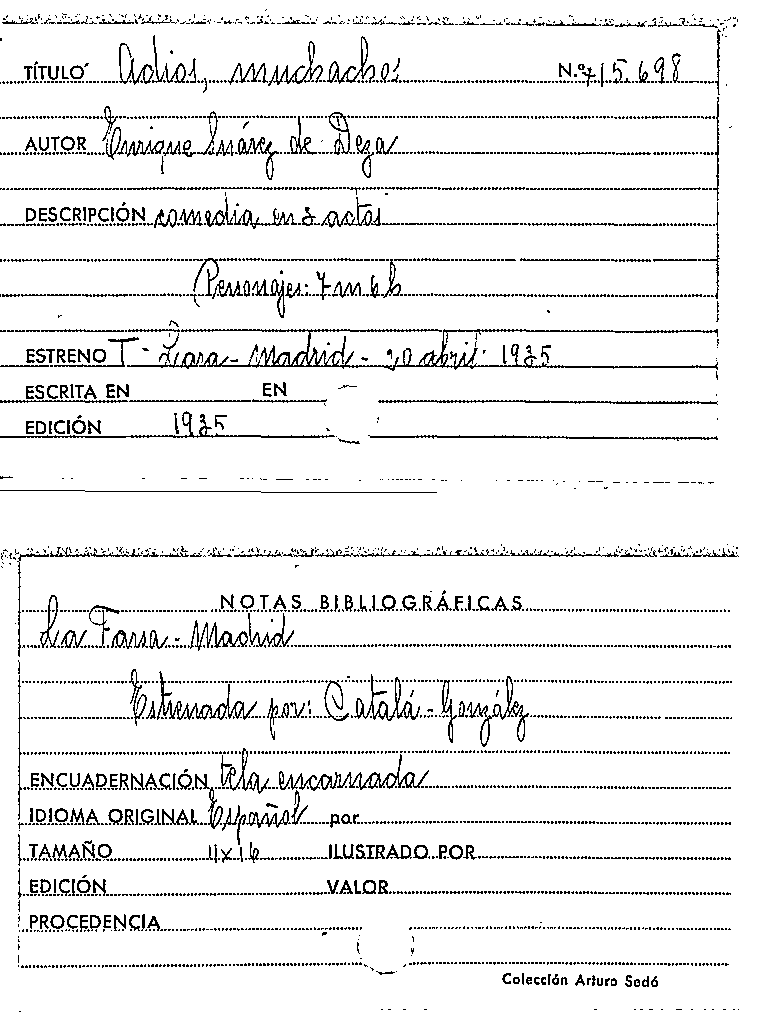 TÍTULO Adios, muchachos N.º 715.698
AUTOR Enrique Suárez de Deza
DESCRIPCIÓN comedia en 3 actos
Personajes: 7 m 6 h
ESTRENO T- Lara - Madrid - 20 abril 1935
ESCRITA EN EN
EDICIÓN 1935
NOTAS BIBLIOGRÁFICAS
La Farsa - Madrid
Estrenada por: Catalá - González
ENCUADERNACIÓN tela encarnada
IDIOMA ORIGINAL Español por
TAMAÑO 11x16 ILUSTRADO POR
EDICIÓN VALOR
PROCEDENCIA
Colección Arturo Sedó